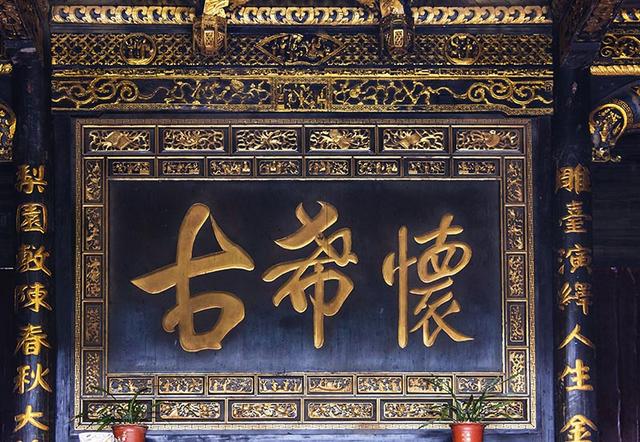 懷希古
雕臺演繹人生金
梨園敷陳春秋大